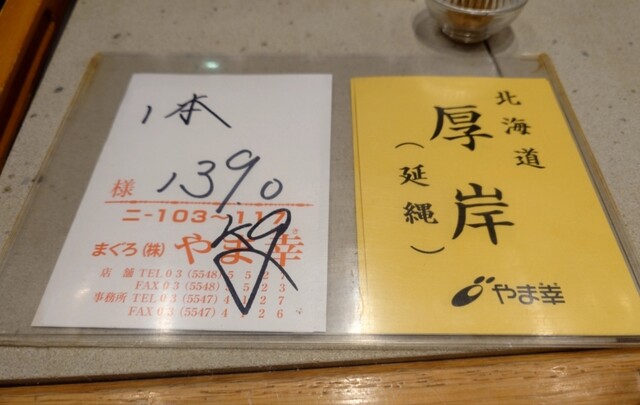 1本
様 139.0
ニ-103~117
まぐろ(株)やま幸
店舗 TEL03(5548)
FAX03(5548)
事務所 TEL03(5547)4127
FAX03(5547)4126
北海道
厚岸
(延縄)
やま幸